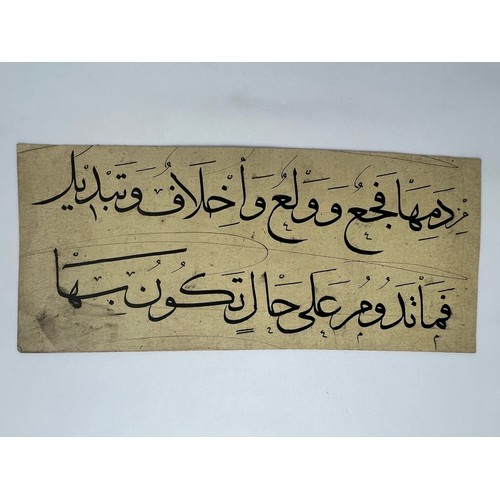 مِنْ دَمِهَا فَجْعٌ وَوَلْعٌ وَأَخْلَافٌ وَتَبْدِيلُ
فَمَا تَدُومُ عَلَى حَالٍ تَكُونُ بِهَا